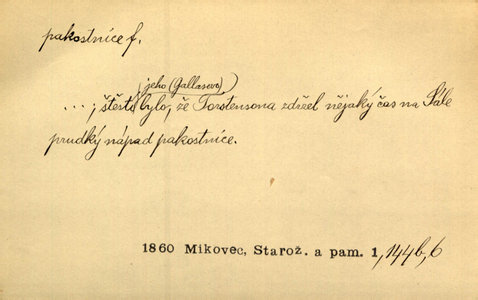 pakostnice f.
jeho (Gallasovo)
...; štěstí bylo, že Torstensona zdržel nějaký čas na Sále
prudký nápad pakostnice.
1860 Mikovec, Starož. a pam. 1, 144b, 6